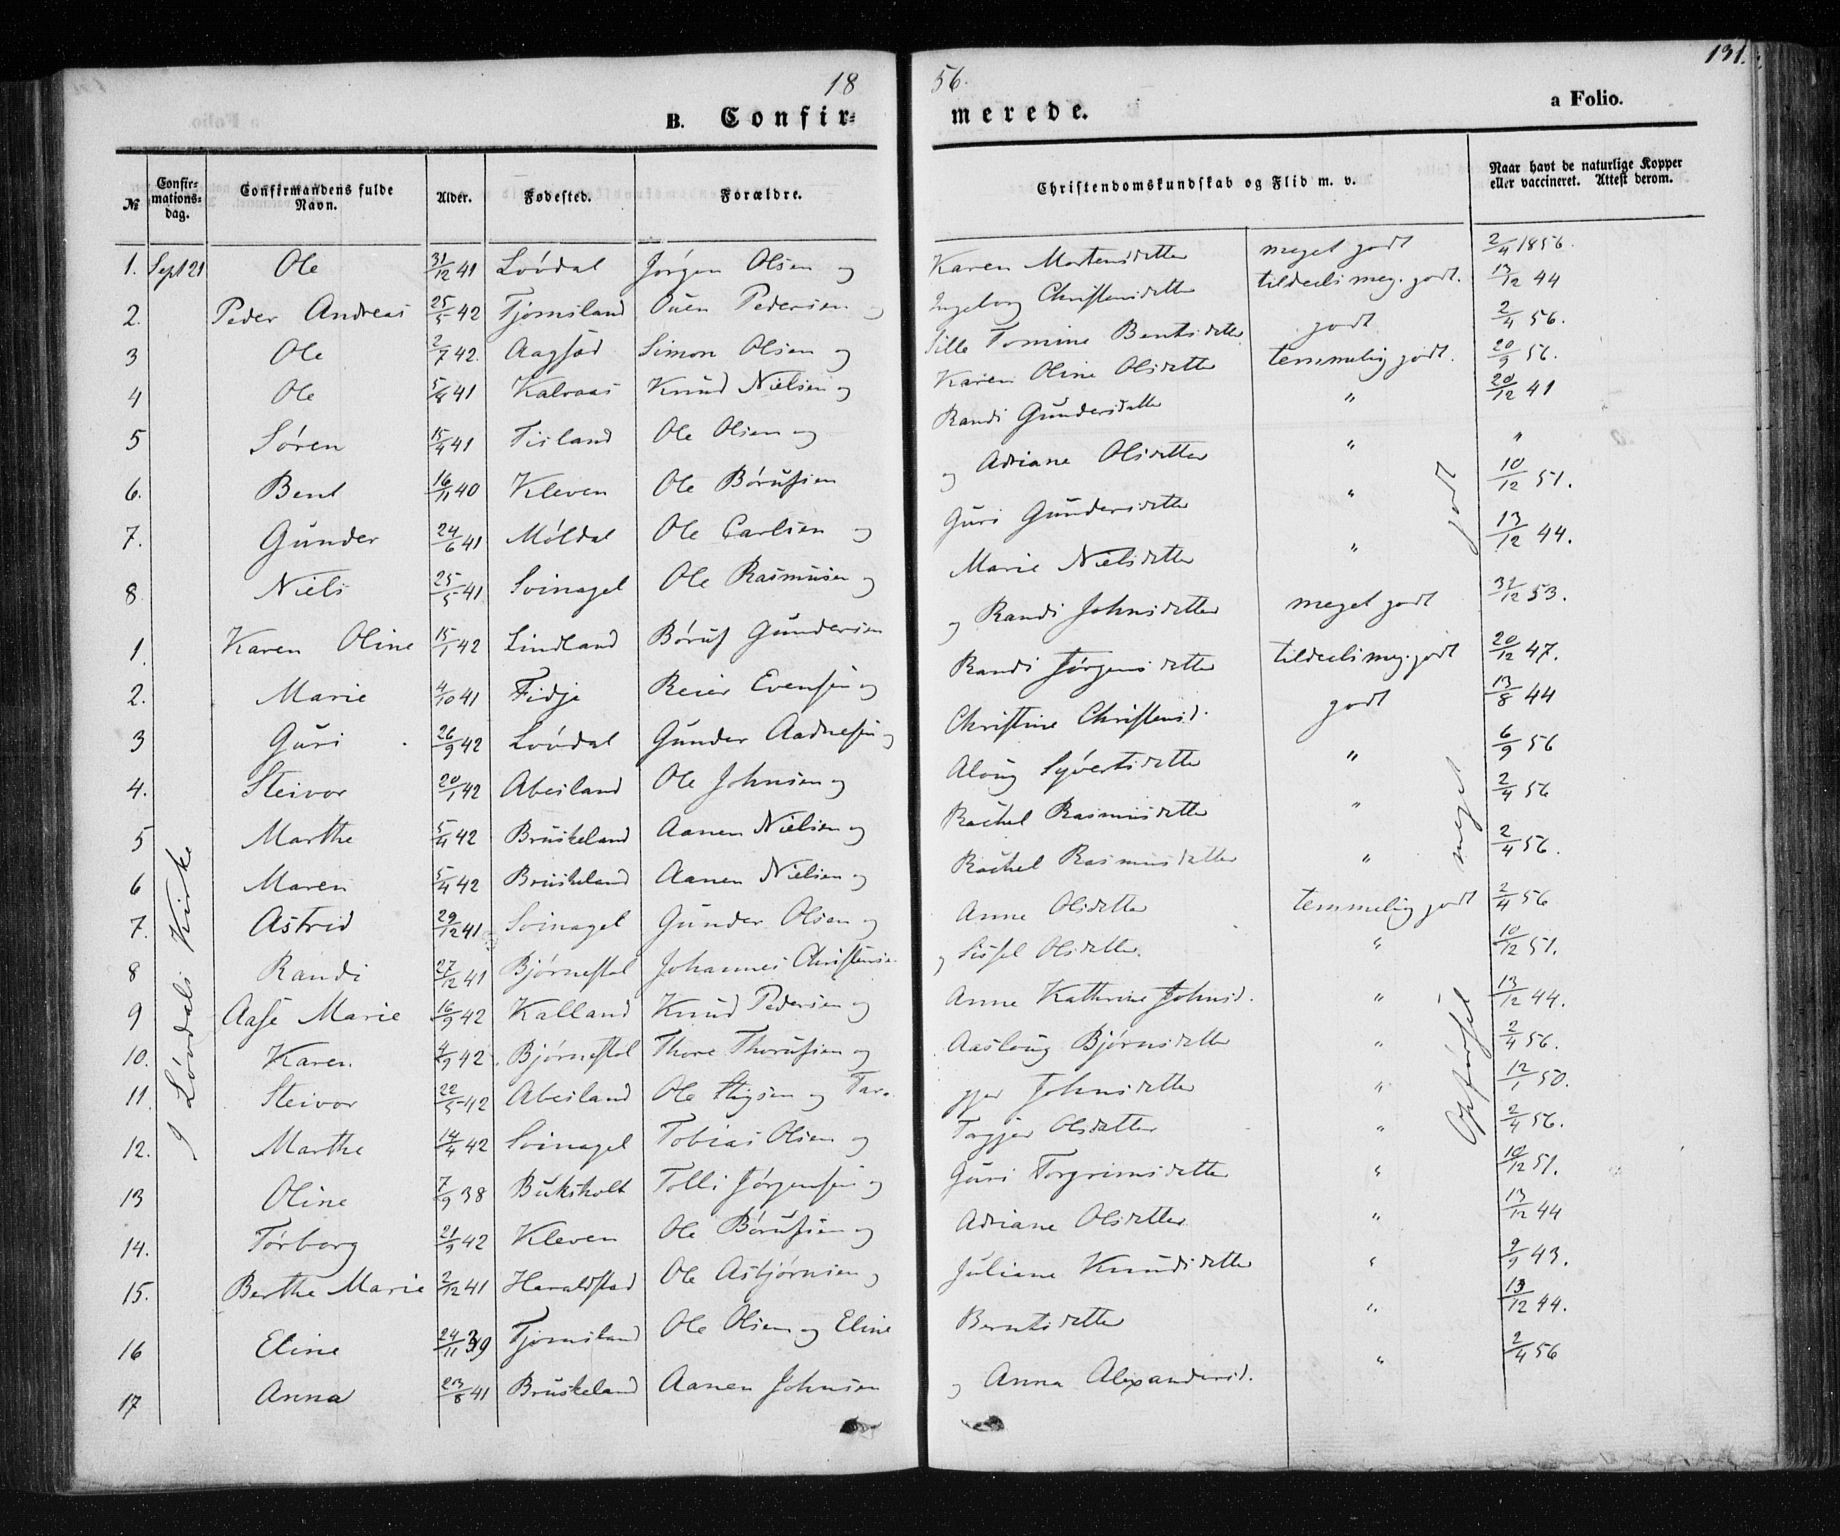 18 56. 131.
B. Confir= merede. a Folio.
№ Confir=mations=dag. Confirmandens fulde Navn. Alder. Fødested. Forældre. Christendomskundskab og Flid m. v. Naar havt de naturlige Kopper eller vaccineret. Attest derom.
1. Sept 21 Ole 31/12 41 Lövdal Jörgen Olsen og Karen Mortensdatter meget godt 2/4 1856.
2. Peder Andreas 25/5 42 Tjomsland Ouen Pedersen og Ingeborg Christensdatter tildeels meg. godt. 13/12 44
3 Ole 2/7 42. Aagsæd Simon Olsen og Sille Tomine Bentsdatter godt 2/4 56.
4 Ole 5/8 41 Kalvaas Knud Nielsen og Karen Oline Olsdatter temmelig godt. 20/9 56.
5 Søren 15/4 41 Fisland Ole Olsen og Randi Gundersdatter " 20/12 41
6. Bent 16/11 40 Kleven Ole Börufsen og Adriane Olsdatter " "
7. Gunder 24/6 41 Möldal Ole Carlsen og Guri Gundersdatter " 10/12 51.
8 Niels 25/5 41 Svinagel Ole Rasmusen og Marie Nielsdatter " 13/12 44.
1. Karen Oline 15/1 42 Lindland Böruf Gundersen og Randi Johnsdatter meget godt 31/12 53.
2. Marie 4/10 41 Fidje Reier Evensen og Randi Jörgensdatter tildeels meg. godt 20/12 47.
3 Guri 26/9 42 Lövdal Gunder Aadnesen og Christine Christensd. godt 13/8 44
4. Steivor 20/1 42 Abesland Ole Johnsen og Aloug Syvertsdatter " 6/9 56
5 Marthe 5/4 42 Bruskeland Aanen Nielsen og Rachel Rasmusdatter " 2/4 56
6 Maren 5/4 42 Bruskeland Aanen Nielsen og Rachel Rasmusdatter " 2/4 56.
7. Astrid 29/12 41 Svinagel Gunder Olsen og Anne Olsdatter temmelig godt 2/4 56
8 Randi 27/12 41 Bjørnestøl Johannes Christensen og Sissel Olsdatter. " 10/12 51.
9 Aase Marie 16/9 42 Kalland Knud Pedersen og Anne Kathrine Johnsd. " 13/12 44.
10. Karen 4/9 42. Bjørnestøl Thore Thorufsen og Aasloug Bjørnsdatter " 2/4 56.
11. Steivor 22/5 42 Abesland Ole Stigsen og Tar= gjer Johnsdatter " 12/1 50.
12. Marthe 14/4 42 Svinagel Tobias Olsen og Targjer Olsdatter " 2/4 56.
13 Oline 7/9 38 Buksholt Tolli Jörgensen og Guri Torgrimsdatter " 10/12 51.
14. Torborg 21/9 42 Kleven Ole Börufsen og Adriane Olsdatter " 13/12 44
15. Berthe Marie 2/12 41 Haraldstad Ole Asbjørnsen og Juliane Knudsdatter " 9/9 43.
16 Eline 24/11 39 Tjomsland Ole Olsen og Eline Berntsdatter " 13/12 44.
17 Anna 23/8 41 Bruskeland Aanen Johnsen og Anna Alexandersd. " 2/4 56
I Lövdals Kirke
Opförsel meget godt